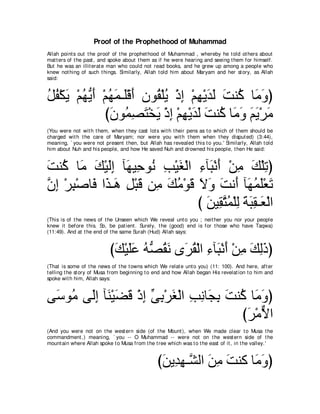 Proof of the Prophethood of Muhammad
Allah points out the proof of the prophethood of Muhammad , whereby he told others about
matters of the past, and spoke about them as if he were hearing and seeing them for himself.
But he was an illiterate man who could not read books, and he grew up among a people who
knew nothing of such things. Similarly, Allah told him about Maryam and her story, as Allah
said:
﴿وَمَا كُنتَ لَدَيْهِمْ إِذْ يُلْقُون أَقْلَـمَهُمْ أَيُّهُمْ يَكْفُلُ
مَرْيَمَ وَمَا كُنتَ لَدَيْهِمْ إِذْ يَخْتَصِمُونَ﴾
(You were not with them, when they cast lots with their pens as to which of them should be
charged with the care of Maryam; nor were you with them when they disputed) (3:44),
meaning, `you were not present then, but Allah has revealed this to you.' Similarly, Allah told him
about Nuh and his people, and how He saved Nuh and drowned his people, then He said:
﴿تِلْكَ مِنْ أَنْبَآءِ الْغَيْبِ نُوحِيهَآ إِلَيْكَ مَا كُنتَ
تَعْلَمُهَآ أَنتَ وَلاَ قَوْمُكَ مِن قَبْلِ هَـذَا فَاصْبِرْ إِنَّ
الْعَـقِبَةَ لِلْمُتَّقِينَ ﴾
(This is of the news of the Unseen which We reveal unto you ; neither you nor your people
knew it before this. So, be patient. Surely, the (good) end is for those who have Taqwa)
(11:49). And at the end of the same Surah (Hud) Allah says:
﴿ذَلِكَ مِنْ أَنْبَآءِ الْقُرَى نَقُصُّهُ عَلَيْكَ﴾
(That is some of the news of the towns which We relate unto you) (11: 100). And here, after
telling the story of Musa from beginning to end and how Allah began His revelation to him and
spoke with him, Allah says:
﴿وَمَا كُنتَ بِجَانِبِ الْغَرْبِىِّ إِذْ قَضَيْنَآ إِلَى مُوسَى
الاٌّمْرَ﴾
(And you were not on the western side (of the Mount), when We made clear to Musa the
commandment,) meaning, `you -- O Muhammad -- were not on the western side of the
mountain where Allah spoke to Musa from the tree which was to the east of it, in the valley.'
﴿وَمَا كنتَ مِنَ الشَّـهِدِينَ﴾